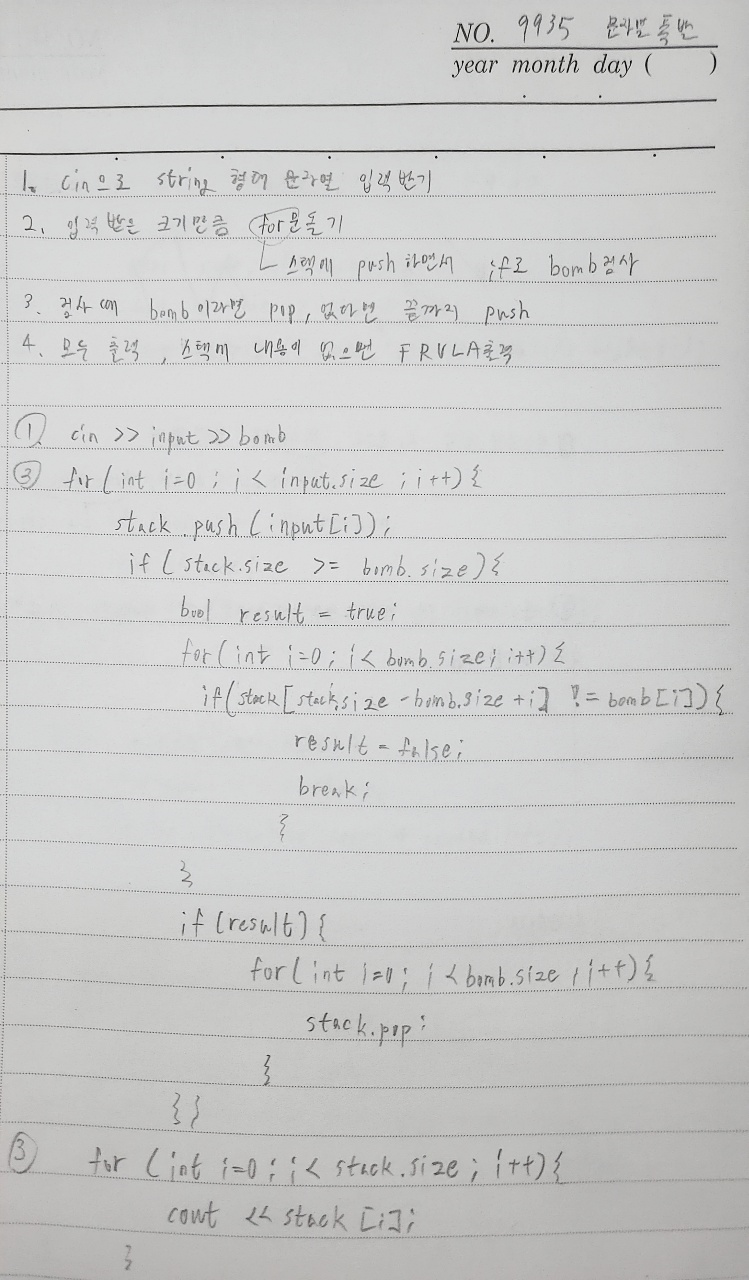 NO. 9935 문자열 폭발
year month day ( )
1. cin으로 string 형태 문자열 입력 받기
2. 입력 받은 크기만큼 for문 돌기
스택에 push 하면서 if로 bomb 검사
3. 검사 때 bomb이라면 pop, 없다면 끝까지 push
4. 모두 출력, 스택에 내용이 없으면 FRULA출력
① cin >> input >> bomb
③ for(int i=0 ; i < input.size ; i++){
stack.push(input[i]);
if(stack.size >= bomb.size){
bool result = true;
for(int i=0; i< bomb.size; i++){
if(stack[stack.size - bomb.size +i] != bomb[i]){
result = false;
break;
}
}
if(result){
for(int i=0; i<bomb.size ; i++){
stack.pop;
}
}}
③ for (int i=0; i< stack.size; i++){
cout << stack[i];
}